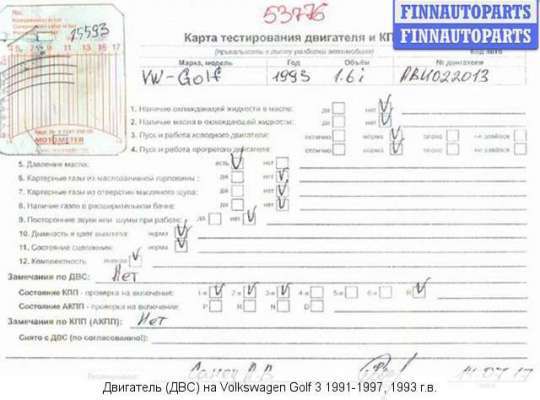 53776
FINNAUTOPARTS
FINNAUTOPARTS
15593
Карта тестирования двигателя и КП
(привязать к листу разборки автомобиля)
Марка, модель Год Объём № двигателя
VW-Golf 1993 1.6i ABU022013
MOTOMETER
1. Наличие охлаждающей жидкости в масле: да нет
2. Наличие масла в охлаждающей жидкости: да нет
3. Пуск и работа холодного двигателя: отлично норма плохо не завёлся
4. Пуск и работа прогретого двигателя: отлично норма плохо не завёлся
5. Давление масла: есть нет
6. Картерные газы из маслозаливной горловины: да нет
7. Картерные газы из отверстия масляного щупа: да нет
8. Наличие газов в расширительном бачке: да нет
9. Посторонние звуки или шумы при работе: да нет
10. Дымность и цвет выхлопа: норма
11. Состояние сцепления: норма
12. Комплектность: полная
Замечания по ДВС: Нет
Состояние КПП - проверка на включение: 1-я 2-я 3-я 4-я 5-я 6-я R
Состояние АКПП - проверка на включение: P R N D
Замечания по КПП (АКПП): Нет
Снято с ДВС (по согласованию):
Двигатель (ДВС) на Volkswagen Golf 3 1991-1997, 1993 г.в.